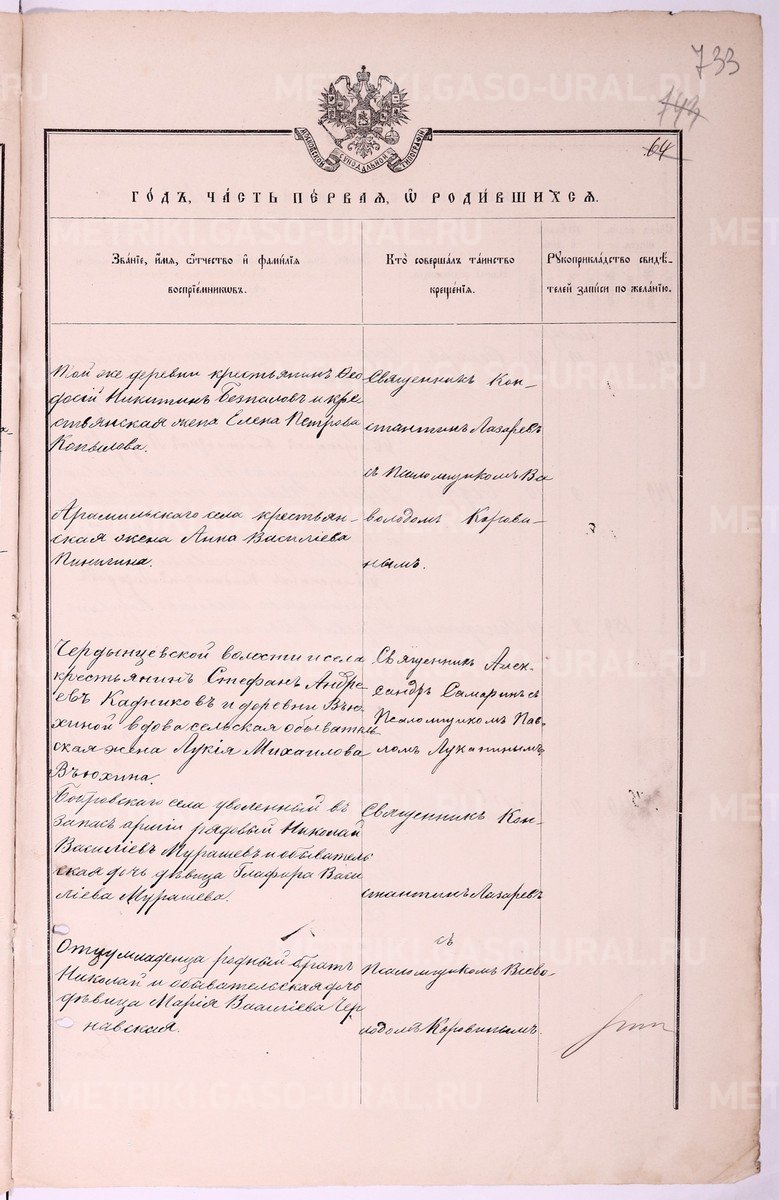 733
144
64
МОСКОВСКОЙ СѴНОДАЛЬНОЙ ТИПОГРАФІИ
ГО́ДЪ, ЧА́СТЬ ПЕ́РВАЯ, Ѽ РОДИ́ВШИХСЯ.
Зва́нїе, и́мя, ѻ҆́тчество и҆ фами́лїя
воспрїе́мникѡвъ.
Кто̀ соверша́лъ та́инство
креще́нїя.
Рꙋкоприкла́дство свидѣ́-
телей за́писи по жела́нїю.
Той же деревни крестьянинъ Ѳео
досій Никитинъ Безпаловъ и кре
стьянская жена Елена Петрова
Копылова.
Священникъ Кон-
стантинъ Лазаревъ
съ Псаломщикомъ Все
володомъ Корова-
нымъ.
Арамильскаго села крестьян-
ская жена Анна Василіева
Пинигина.
Чердынцевской волости и села
крестьянинъ Стефанъ Андре
евъ Кадниковъ и деревни Вью
хиной вдова сельская обыватель
ская жена Лукія Михаилова
Вьюхина.
Священникъ Алек-
сандръ Самаринъ съ
Псаломщикомъ Пав-
ломъ Луканинымъ.
села уволенный въ
запасъ арміи рядовый Николай
Василіевъ Мурашевъ и обыватель
ская дочь дѣвица Глафира Васи
ліева Мурашева.
Священникъ Кон-
стантинъ Лазаревъ
съ
Псаломщикомъ Всево-
лодомъ Коровинымъ.
Отцу младенца родный братъ
Николай и обывательская дочь
дѣвица Марія Василіева Чер
навская.
METRIKI.GASO-URAL.RU